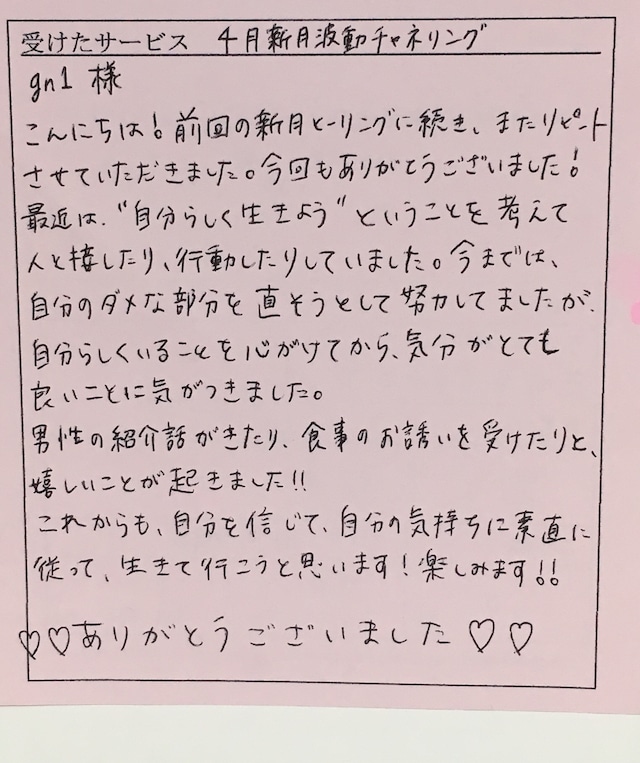 受けたサービス 4月新月波動チャネリング
gn1 様
こんにちは！前回の新月ヒーリングに続き、またリピート
させていただきました。今回もありがとうございました！
最近は、“自分らしく生きよう”ということを考えて
人と接したり、行動したりしていました。今までは、
自分のダメな部分を直そうとして努力してましたが、
自分らしくいることを心がけてから、気分がとても
良いことに気がつきました。
男性の紹介話がきたり、食事のお誘いを受けたりと、
嬉しいことが起きました!!
これからも、自分を信じて、自分の気持ちに素直に
従って、生きて行こうと思います！楽しみます!!
♡♡ありがとうございました♡♡